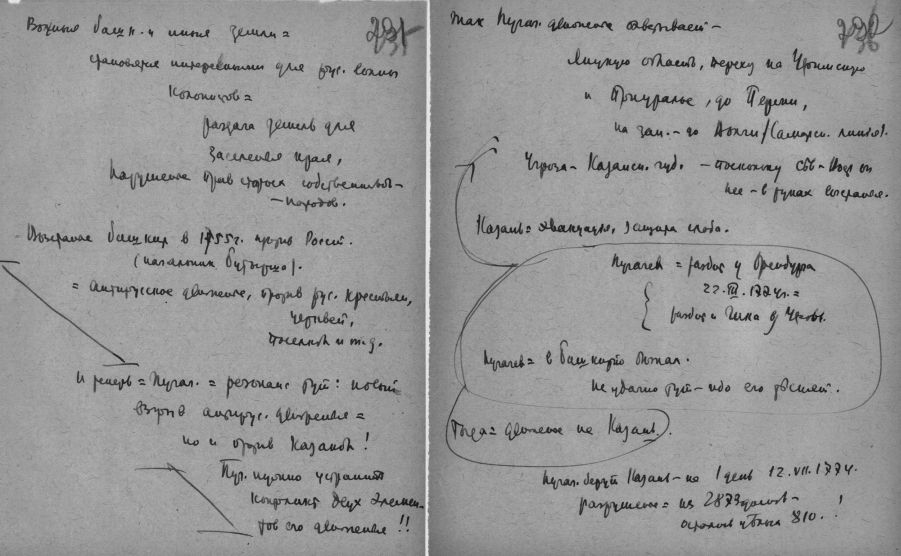 231
башк. и иные земли =
становятся интересными для рус. волны
колонистов =
раздача земель для
заселения края,
нарушение прав старых собственников –
– народов.
Восстание башкир в 1755 г. против России.
(начальник Батырша).
= антирусское движение, против рус. крестьян,
церквей,
поселков и т.д.
И теперь = Пугач. = резонанс тут: новый
взрыв антирус. движения =
но и против Казани!
Пуг. нужно устранить
конфликт двух элемен-
тов его движения!!
232
Так Пугач. движение охватывает –
Яицкую область, реку
и Приуралье, до Перми,
на зап. – до Волги / Самарск. линия).
Угроза – Казанск. губ. – поскольку
нее – в руках
Казань = эвакуация, защита слаба.
Пугачев = разбит у Оренбурга
22.III.1774 г. =
разбит и Чика у Уфы.
Пугачев = в Башкирию бежал.
Неудачно тут – ибо его теснят.
Тогда = движение на Казань.
Пугач. берут Казань – на 1 день 12.VII.1774.
разрушение = из 2873 домов –
осталось 810. !